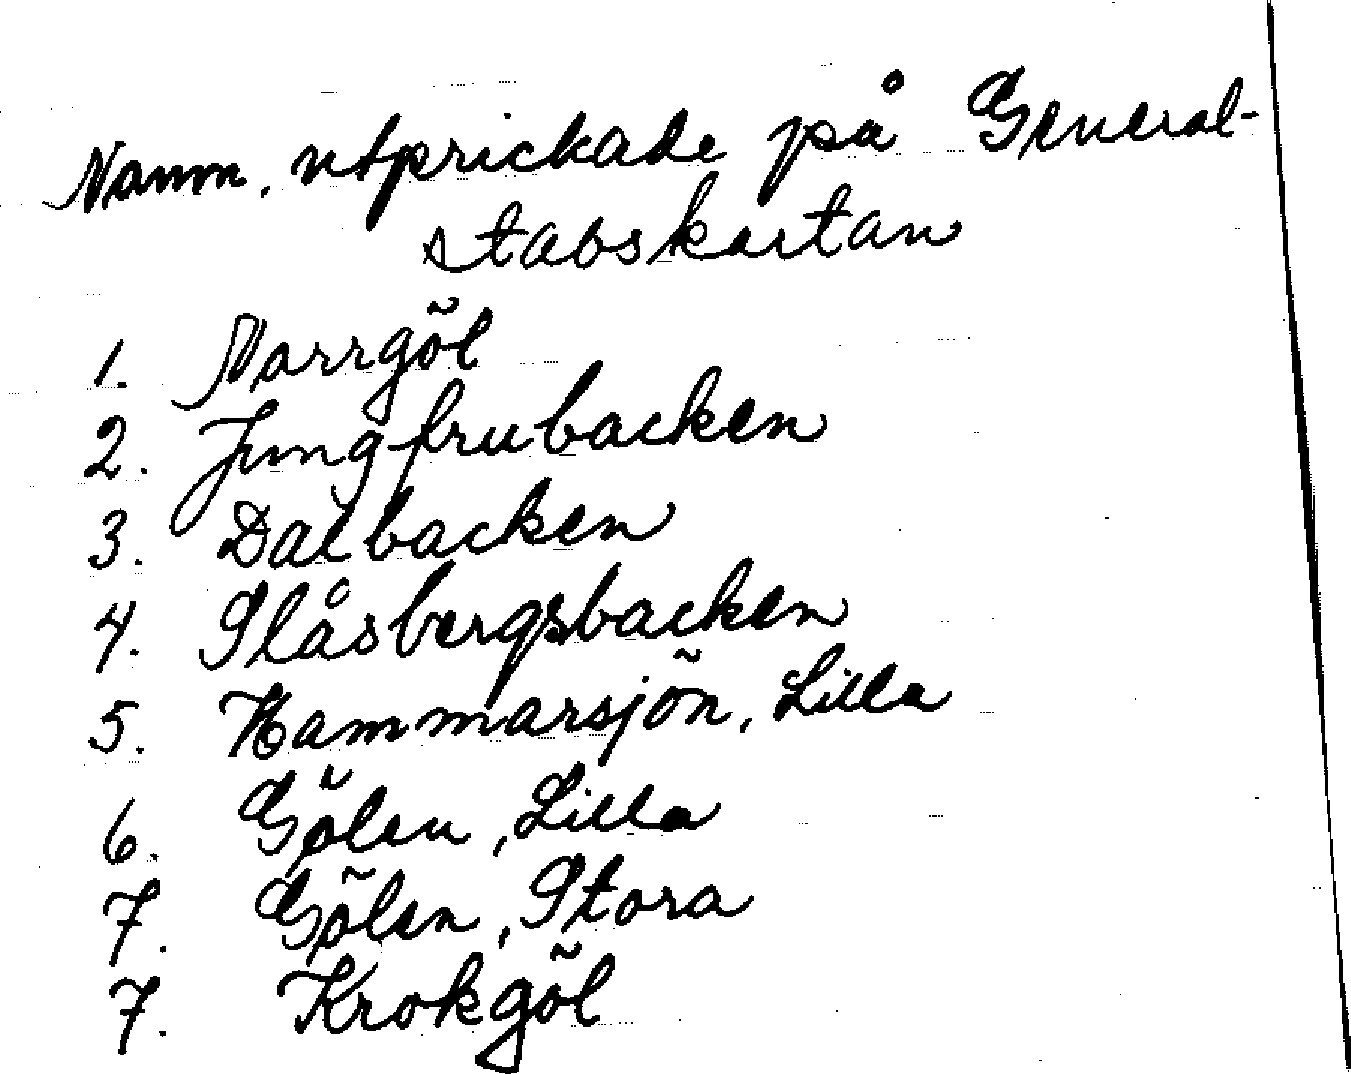 Namn, utprickade på General-
stabskartan
1. Norrgöl
2. Jungfrubacken
3. Dalbacken
4. Slåsbergsbacken
5. Hammarsjön, Lilla
6. Gölen, Lilla
7. Gölen, Stora
7. Krokgöl